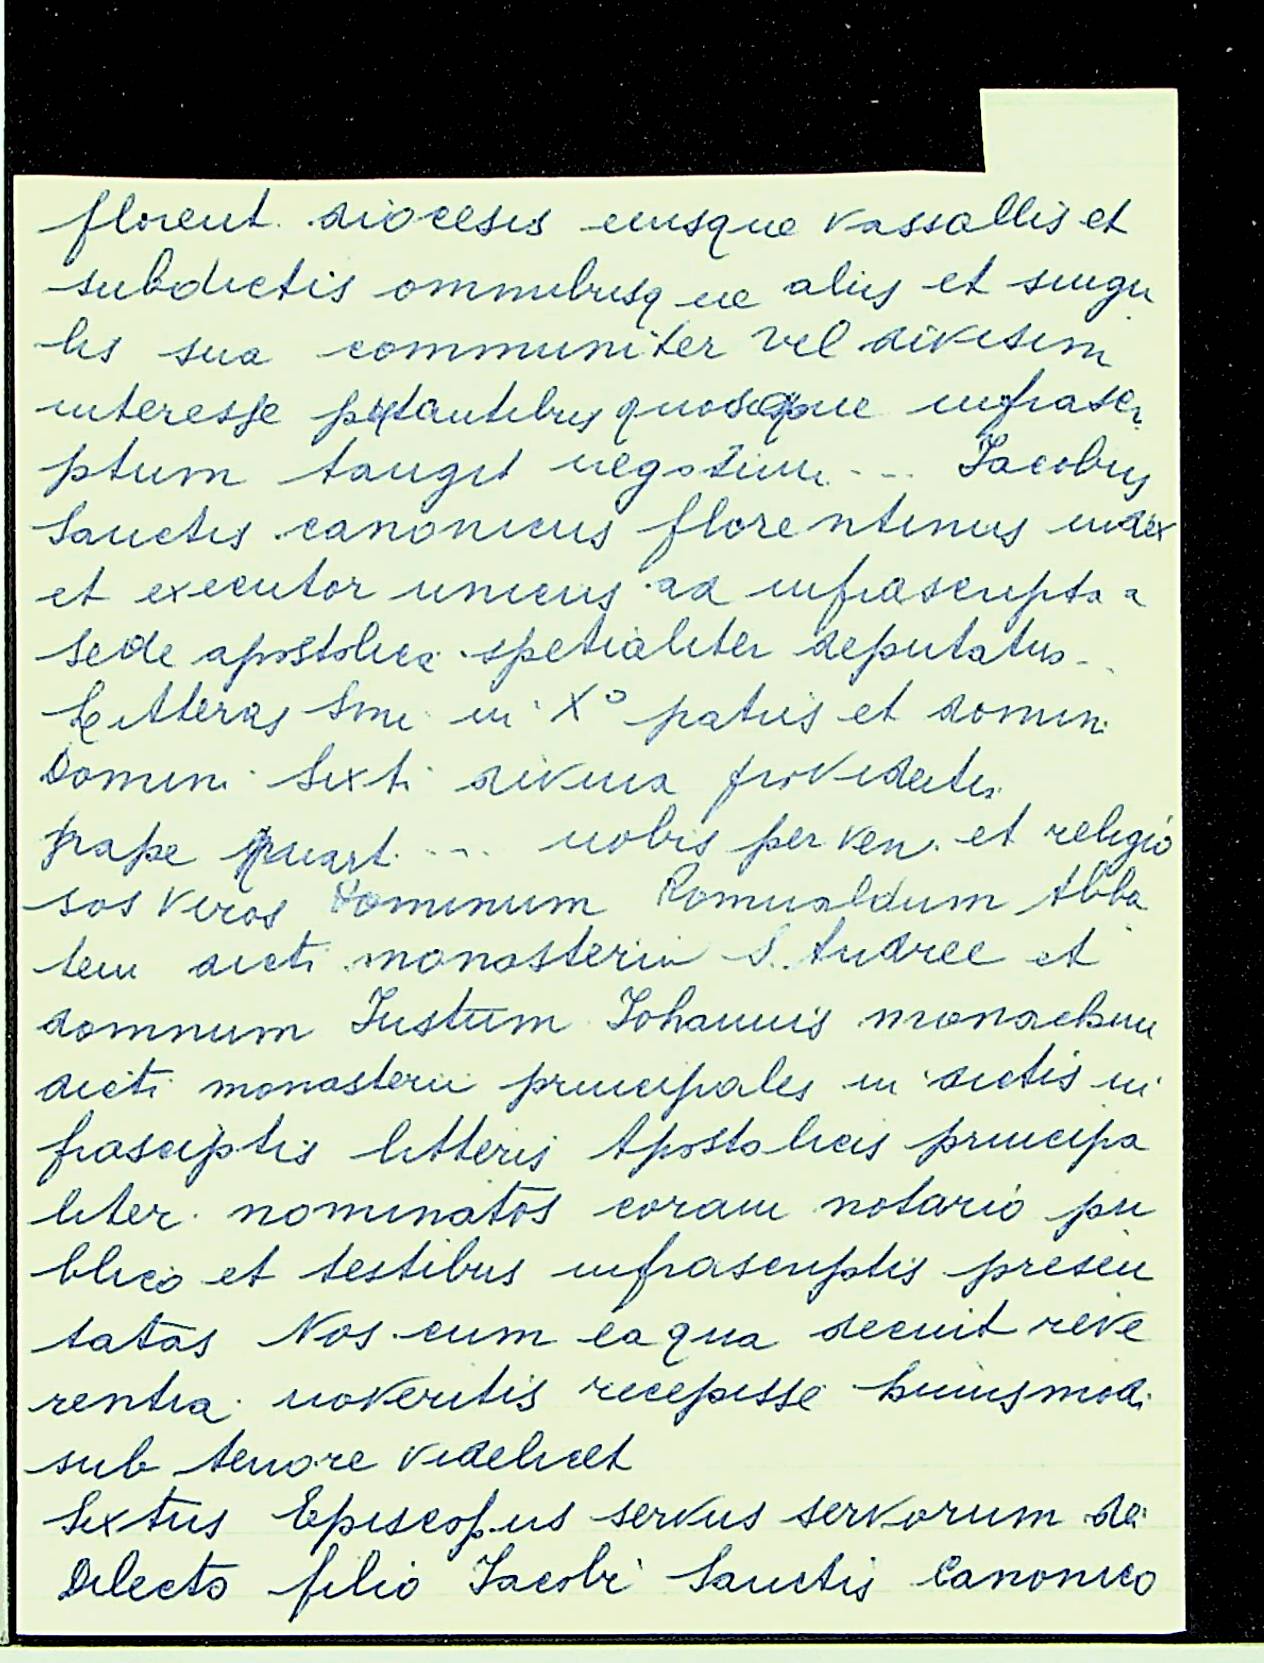 florent. diocesis eiusque vassallis et
subdictis omnibusque aliis et singu
lis sua communiter vel divisim
interesse putantibus quosque infrascri
ptum tangit negotium --- Jacobus
Sanctis canonicus florentinus iudex
et executor unicus ad infrascripta a
sede apostolica spetialiter deputatus --
Litteras Smi in X° patris et domini
Domini Sixti divina providentia
pape quart. --- nobis per ven. et religio
sos viros Dominum Romualdum Abba
tem dicti monasterii S. Andree et
domnum Justum Johannis monachum
dicti monasterii principales in dictis in
frascriptis litteris Apostolicis principa
liter nominatos coram notario pu
blico et testibus infrascriptis presen
tatas Nos cum ea qua decuit reve
rentia noveritis recepisse huiusmodi
sub tenore videlicet
Sixtus Episcopus servus servorum dei
Dilecto filio Jacobi Sanctis Canonico